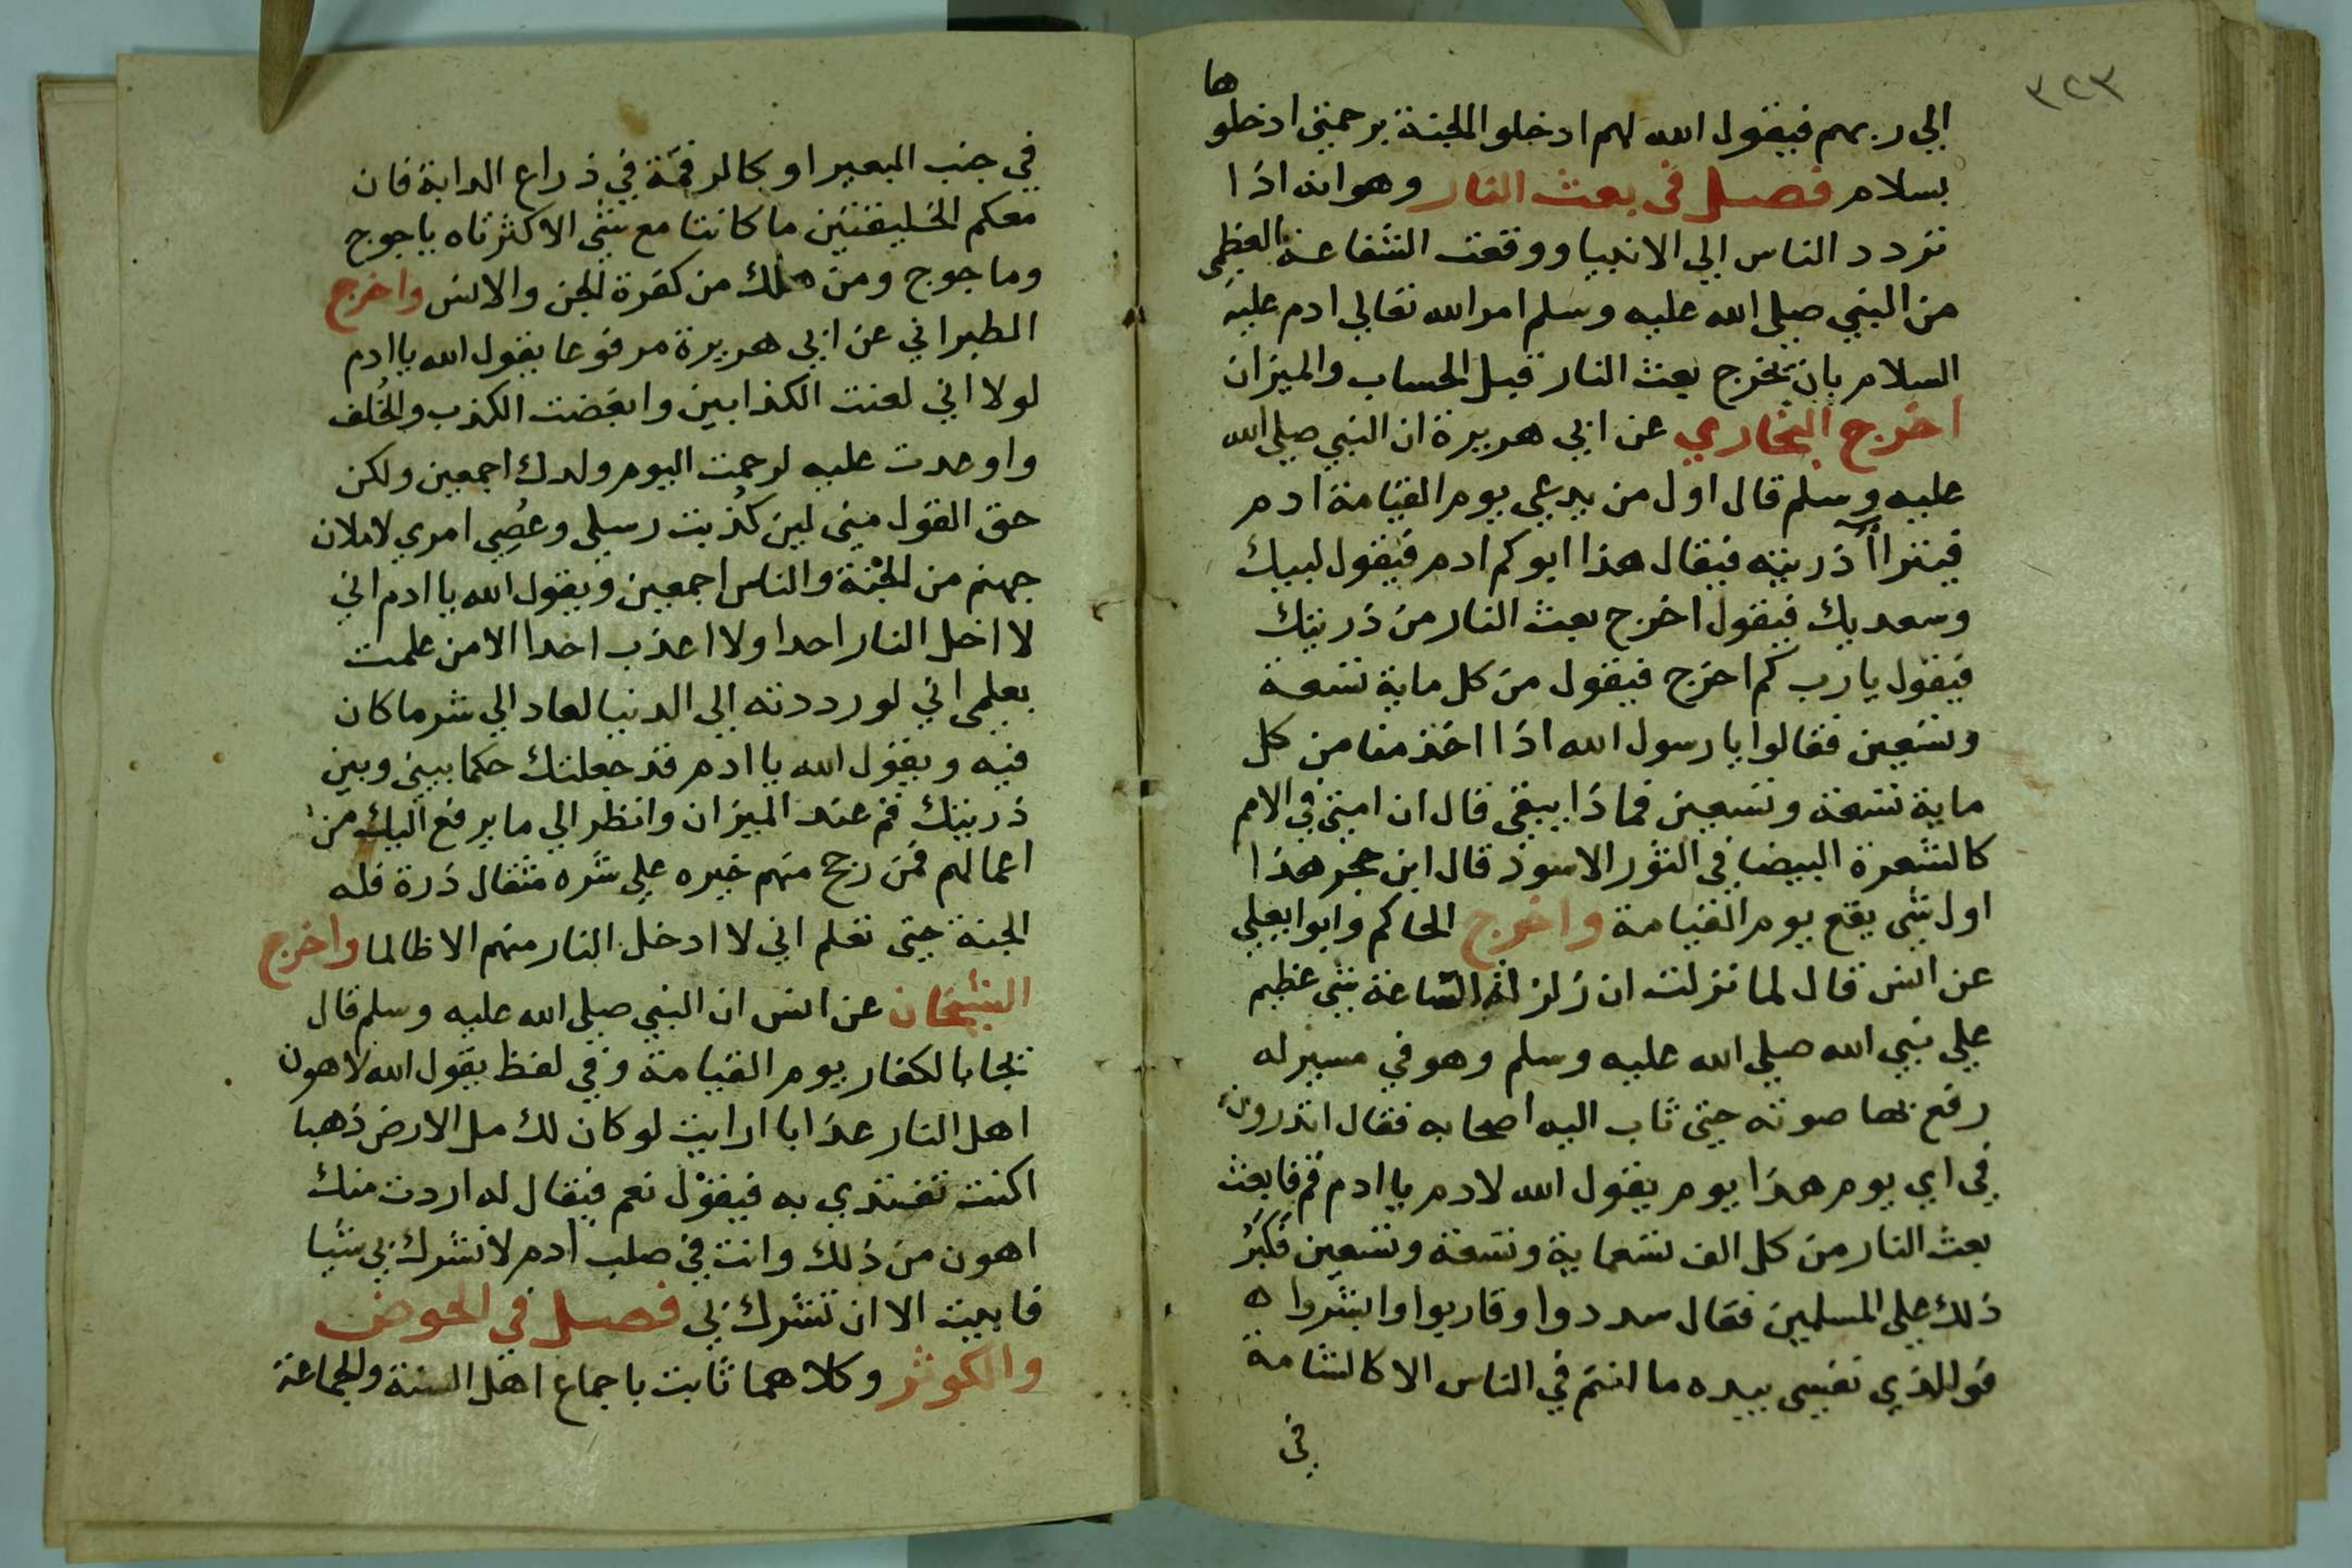 ٣٢٣
الي ربهم فيقول الله لهم ادخلوا الجنة برحمتي ادخلوها
بسلام فصل في بعث النار وهوانه اذا
تردد الناس الي الانبيا ووقعت الشفاعة العظمى
من النبي صلي الله عليه وسلم امر الله تعالي ادم عليه
السلام بان يخرج بعث النار قبل الحساب والميزان
اخرج البخاري عن ابي هريرة ان النبي صلي الله
عليه وسلم قال اول من يدعي يوم القيامة ادم
فيتراآ ذريته فيقال هذا ابوكم ادم فيقول لبيك
وسعديك فيقول اخرج بعث النار من ذريتك
فيقول يا رب كم اخرج فيقول من كل ماية تسعة
وتسعين فقالوا يا رسول الله اذا اخذ منا من كل
ماية تسعة وتسعين فماذا يبقي قال ان امتي في الامم
كالشعرة البيضا في الثور الاسود قال ابن حجر هذا
اول شي يقع يوم القيامة واخرج الحاكم وابوا يعلي
عن انس قال لما نزلت ان زلزلة الساعة شي عظيم
علي نبي الله صلي الله عليه وسلم وهو في مسير له
رفع بها صوته حتي ثاب اليه اصحابه فقال اتدرون
في اي يوم هذا يوم يقول الله لادم يا ادم قم فابعث
بعث النار من كل الف تسعماية وتسعة وتسعين فكبر
ذلك علي المسلمين فقال سددوا وقاربوا وابشروا ه
فوالذي نفسي بيده ما انتم في الناس الا كالشامة
في
في جنب البعير او كالرقمة في ذراع الدابة فان
معكم الخليفتين ما كانتا مع شي الا كثرتاه ياجوج
وماجوج ومن هلك من كفرة الجن والانس واخرج
الطبراني عن ابي هريرة مرفوعا يقول الله يا ادم
لولا اني لعنت الكذابين وابغضت الكذب والخلف
واوعدت عليه لرحمت اليوم ولدك اجمعين ولكن
حق القول مني لين كُذبت رسلي وعُصِي امري لاملان
جهنم من الجنة والناس اجمعين ويقول الله يا ادم اني
لا اخل النار احدا ولا اعذب احدا الا من علمت
بعلمي اني لو رددته الي الدنيا لعاد الي شر ما كان
فيه ويقول الله يا ادم قد جعلتك حكما بيني وبين
ذريتك قم عند الميزان وانظر الي ما يرفع اليك من
اعمالهم فمن رجح منهم خيره علي شره مثقال ذرة فله
الجنة حتي تعلم اني لا ادخل النار منهم الا ظالما واخرج
الشيخان عن انس ان النبي صلي الله عليه وسلم قال
يجا بالكفار يوم القيامة وفي لفظ يقول الله لاهون
اهل النار عذابا ارايت لو كان لك مل الارض ذهبا
اكنت تفتدي به فيقول نعم فيقال له اردت منك
اهون من ذلك وانت في صلب ادم لا تشرك بي شيا
فابيت الا ان تشرك بي فصل في الحوض
والكوثر وكلاهما ثابت باجماع اهل السنة والجماعة